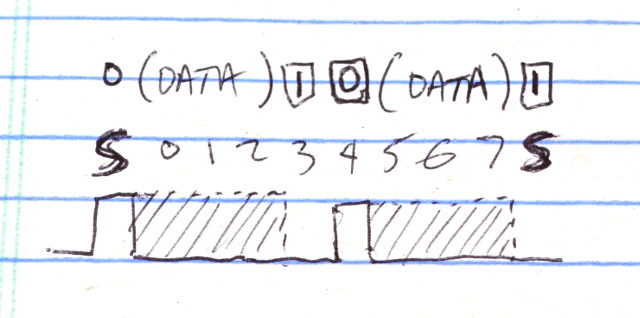 0 (DATA) 1 0 (DATA) 1
S 0 1 2 3 4 5 6 7 S